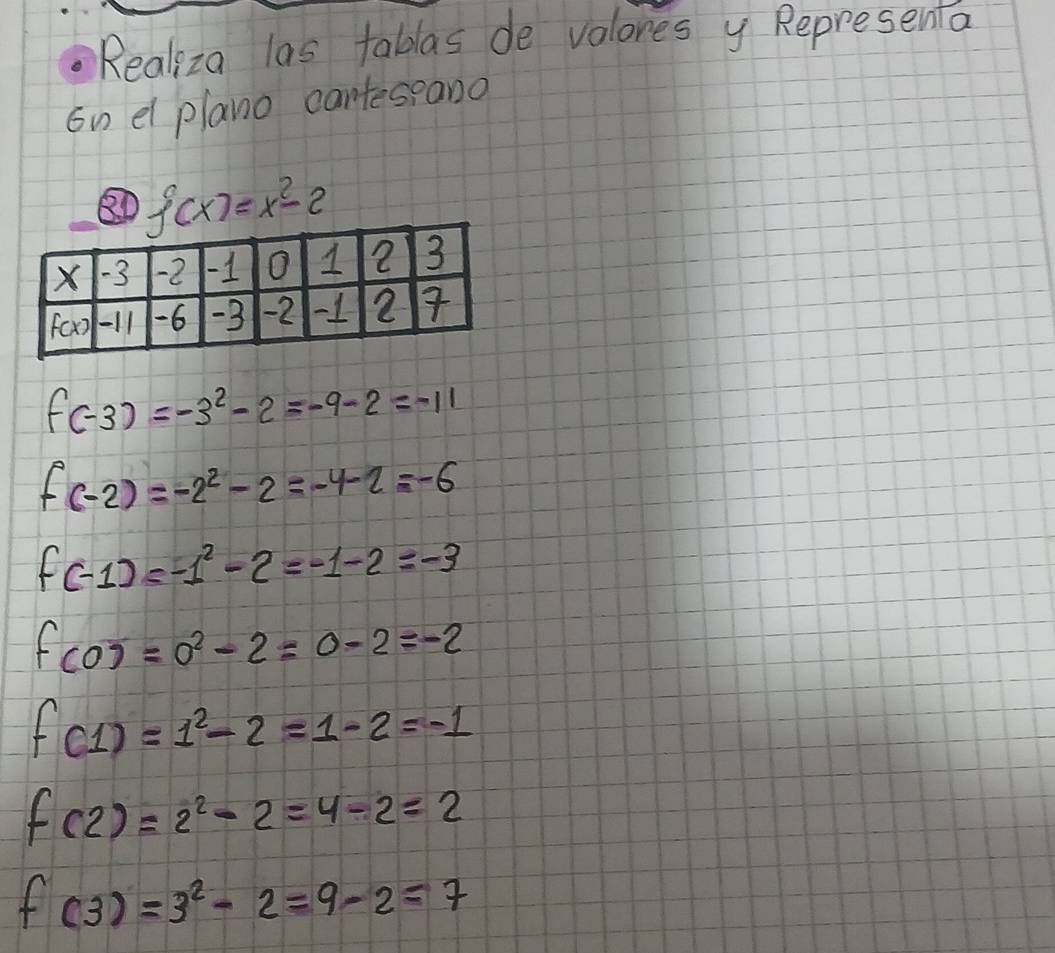 • Realiza las tablas de valores y Representa
En el plano cartesiano
B) f(x)=x²-2
x -3 -2 -1 0 1 2 3
f(x) -11 -6 -3 -2 -1 2 7
f(-3) = -3² - 2 = -9 - 2 = -11
f(-2) = -2² - 2 = -4 - 2 = -6
f(-1) = -1² - 2 = -1 - 2 = -3
f(0) = 0² - 2 = 0 - 2 = -2
f(1) = 1² - 2 = 1 - 2 = -1
f(2) = 2² - 2 = 4 - 2 = 2
f(3) = 3² - 2 = 9 - 2 = 7